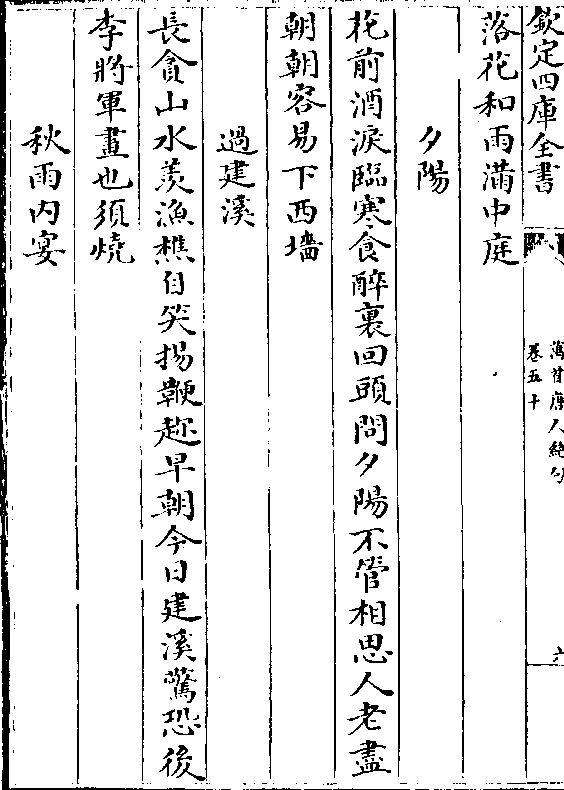 欽定四庫全書
萬首唐人絶句
卷五十
六
落花和雨滿中庭
夕陽
花前酒淚臨寒食醉裏回頭問夕陽不管相思人老盡
朝朝容易下西墻
過建溪
長貪山水羨漁樵自笑揚鞭趂早朝今日建溪驚恐後
李將軍畫也須燒
秋雨内宴